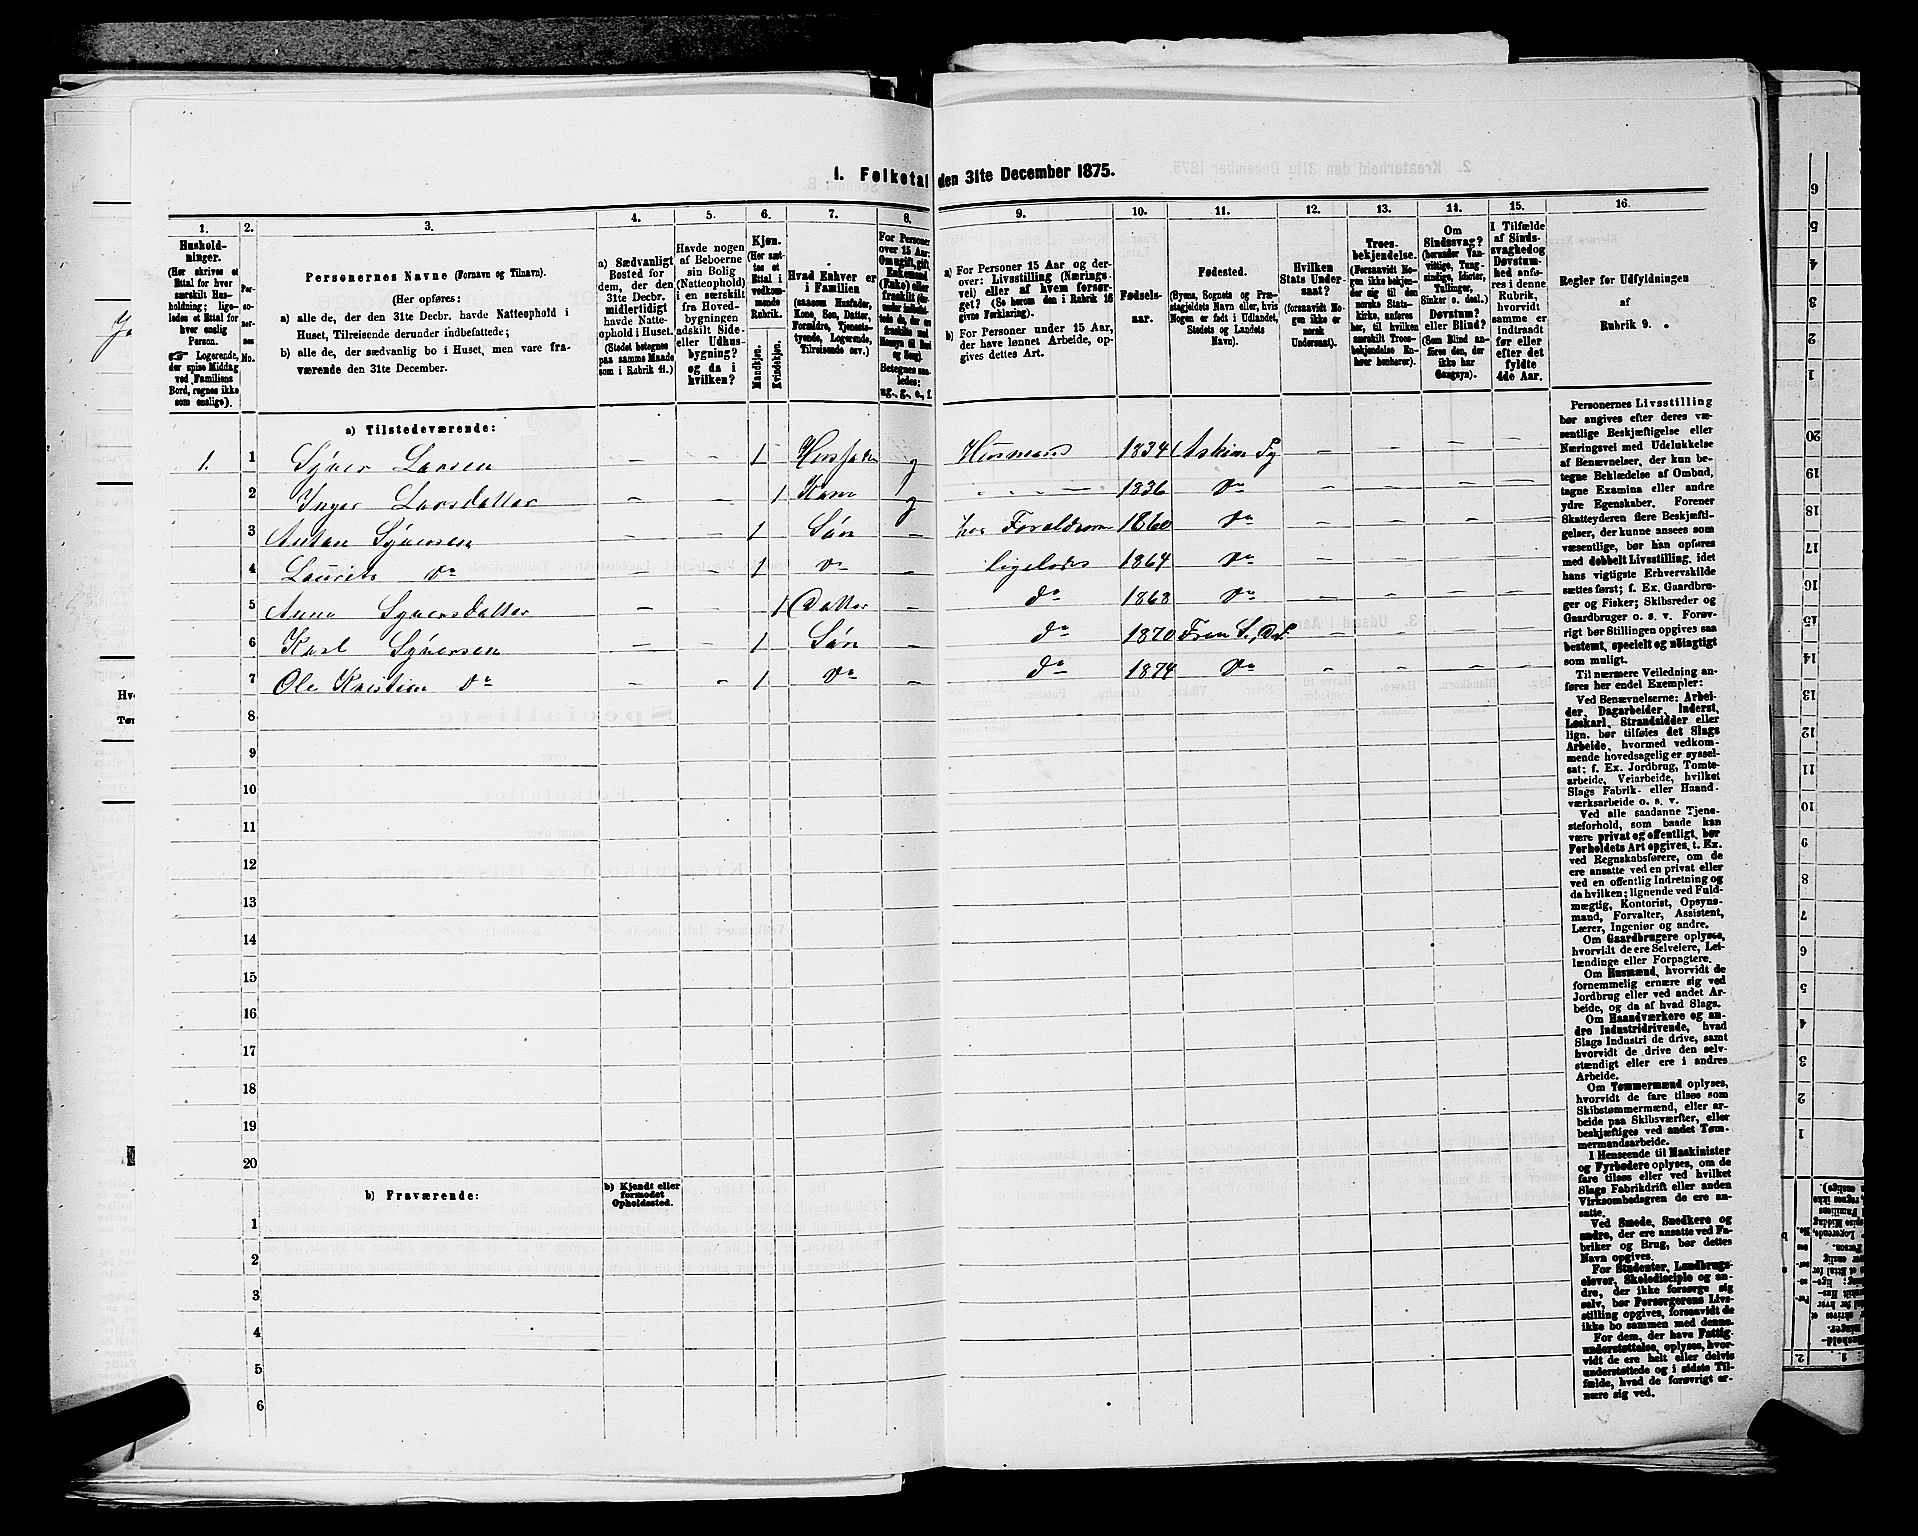 1. Folketal den 31te December 1875.
1. 2. 3. 4. 5. 6. 7. 8. 9. 10. 11. 12. 13. 14. 15. 16.
Hushold-
ninger.
(Her skrives et
Ettal for hver
særskilt Hus-
holdning; lige-
ledes et Ettal for
hver enslig
Person.
☞ Logerende,
der spise Middag
ved Familiens
Bord, regnes ikke
som enslige).
Per-
so-
ner-
nes
No.
Personernes Navne (Fornavn og Tilnavn).
(Her opføres:
a) alle de, der den 31te Decbr. havde Natteophold i
Huset, Tilreisende derunder indbefattede;
b) alle de, der sædvanlig bo i Huset, men vare fra-
værende den 31te December.
a) Sædvanligt
Bosted for
dem, der den
31te Decbr.
midlertidigt
havde Natte-
ophold i Huset.
(Stedet betegnes
paa samme Maade
som i Rubrik 11.)
Havde nogen
af Beboerne
sin Bolig
(Natteophold)
i en særskilt
fra Hoved-
bygningen
adskilt Side-
eller Udhus-
bygning?
og da i
hvilken?
Kjøn.
(Her sæt-
tes et
Ettal i
vedkom-
mende
Rubrik.
Mandkjøn.
Kvindekjøn.
Hvad Enhver er
i Familien
(saasom Husfader,
Kone, Søn, Datter,
Forældre, Tjeneste-
tyende, Logerende,
Tilreisende osv.)
For Personer
over 15 Aar:
Om ugift, gift
Enkemand
(Enke) eller
fraskilt
Betegnes saa-
ledes:
ug., g., e., f.
a) For Personer 15 Aar og der-
over: Livsstilling (Nærings-
vei) eller af hvem forsør-
get? (Se herom den i Rubrik 16
givne Forklaring).
b) For Personer under 15 Aar,
der have lønnet Arbeide, op-
gives dettes Art.
Fødsels-
aar.
Fødested.
(Byens, Sognets og Præ-
stegjeldets Navn eller, hvis
Nogen er født i Udlandet,
Stedets og Landets
Navn).
Hvilken
Stats Under-
saat?
(forsaavidt No-
gen ikke er
norsk
Undersaat).
Troes-
bekjendelse.
(Forsaavidt No-
gen ikke bekjen-
der sig til den
norske Stats-
kirke, anføres
her, til hvilken
særskilt Troes-
bekjendelse En-
hver henhører).
Om
Sindssvag?
(herunder Van-
vittige, Tung-
sindige, Idioter,
Sinker o. desl.)
Døvstum?
eller Blind?
(Som Blind an-
føres den, der
ikke har
Gangsyn).
I Tilfælde
af Sinds-
svaghed og
Døvstum-
hed anfø-
res i denne
Rubrik,
hvorvidt
samme er
indtraadt
før eller
efter det
fyldte
4de Aar.
Regler for Udfyldningen
af
Rubrik 9.
a) Tilstedeværende:
1. 1 Syver Larsen – – 1 g Husmand 1834 Askim – – – –
2 Inger Larsdatter – – 1 Kone g 1836 do – – – –
3 Anton Syversen 1 Søn – hos Forældrene 1860 do – – – –
4 Laurits do – – 1 do – ligeledes 1864 do – – – –
5 Anne Syversdatter – – 1 Datter – do 1868 do – – – –
6 Karl Syversen – – 1 Søn – do 1870 – – – –
7 Ole Kristian do – – 1 do – do 1874 do – – – –
8
9
10
11
12
13
14
15
16
17
18
19
20
b) Fraværende:
b) Kjendt eller
formodet
Opholdssted.
1
2
3
4
5
6
Personernes Livsstilling
bør angives efter deres væ-
sentlige Beskjæftigelse eller
Næringsvei med Udelukkelse
af Benævnelser, der kun be-
tegne Beklædelse af Ombud,
tagne Examina eller andre
ydre Egenskaber. Forener
Skatteyderen flere Beskjæfti-
gelser, der kunne ansees som
væsentlige, bør han opføres
med dobbelt Livsstilling, idet
hans vigtigste Erhvervskilde
sættes først; f. Ex. Gaardbru-
ger og Fisker; Skibsreder og
Gaardbruger o. s. v. Forøv-
rigt bør Stillingen opgives saa
bestemt, specielt og nøiagtigt
som muligt.
Til nærmere Veiledning an-
føres her endel Exempler:
Ved Benævnelserne: Arbei-
der, Dagarbeider, Inderst,
Løskarl, Strandsidder eller
lign. bør tilføies det Slags
Arbeide, hvormed vedkom-
mende hovedsagelig er syssel-
sat; f. Ex. Jordbrug, Tomte-
arbeide, Veiarbeide, hvilket
Slags Fabrik- eller Haand-
værksarbeide o. s. v.
Ved alle saadanne Tjene-
steforhold, som baade kan
være privat og offentligt, bør
Forholdets Art opgives, t. Ex.
ved Regnskabsførere, om de
ere ansatte ved en privat eller
ved en offentlig Indretning og
da hvilken; lignende ved Fuld-
mægtig, Kontorist, Opsyns-
mand, Forvalter, Assistent,
Lærer, Ingeniør og andre.
Om Gaardbrugere oplyses,
hvorvidt de ere Selveiere, Lei-
lændinge eller Forpagtere.
Om Husmænd, hvorvidt de
fornemmelig ernære sig ved
Jordbrug eller ved andet Ar-
beide, og da af hvad Slags.
Om Haandværkere og an-
dre Industridrivende, hvad
Slags Industri de drive, samt
hvorvidt de drive den selv-
stændigt eller ere i andres
Arbeide.
Om Tømmermænd oplyses,
hvorvidt de fare tilsøs som
Skibstømmermænd, eller ar-
beide paa Skibsværfter, eller
beskjæftiges ved andet Tøm-
mermandsarbeide.
I Henseende til Maskinister
og Fyrbødere oplyses, om de
fare tilsøs eller ved hvilket
Slags Fabrikdrift eller anden
Virksomhedsgren de ere an-
satte.
Ved Smede, Snedkere og
andre, der ere ansatte ved Fa-
briker og Brug, bør dettes
Navn opgives.
For Studenter, Landbrugs-
elever, Skoledisciple og an-
dre, der ikke forsørge sig
selv, bør Forsørgerens Livs-
stilling opgives, forsaavidt de
ikke bo sammen med denne.
For dem, der have Fattig-
understøttelse, oplyses, hvor-
vidt de ere helt eller delvis
understøttede og i sidste Til-
fælde, hvad de forøvrigt er-
nære sig ved.